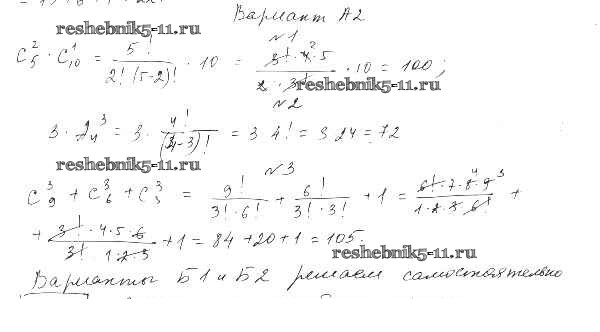 Вариант А2
reshebnik5-11.ru
№1
C₅² · C₁₀¹ = 5! / 2! (5-2)! · 10 = 3! · 4² · 5 / 2 · 3! · 10 = 100;
reshebnik5-11.ru
№2
3 · A₄³ = 3 · 4! / (4-3)! = 3 4! = 3 24 = 72
reshebnik5-11.ru
№3
C₉³ + C₆³ + C₃³ = 9! / 3! · 6! + 6! / 3! · 3! + 1 = 6! · 7 · 8⁴ · 9³ / 1 · 2 · 3 · 6! +
+ 3! · 4 · 5 · 6 / 3! · 1 · 2 · 3 + 1 = 84 + 20 + 1 = 105.
reshebnik5-11.ru
Варианты Б1 и Б2 решаем самостоятельно